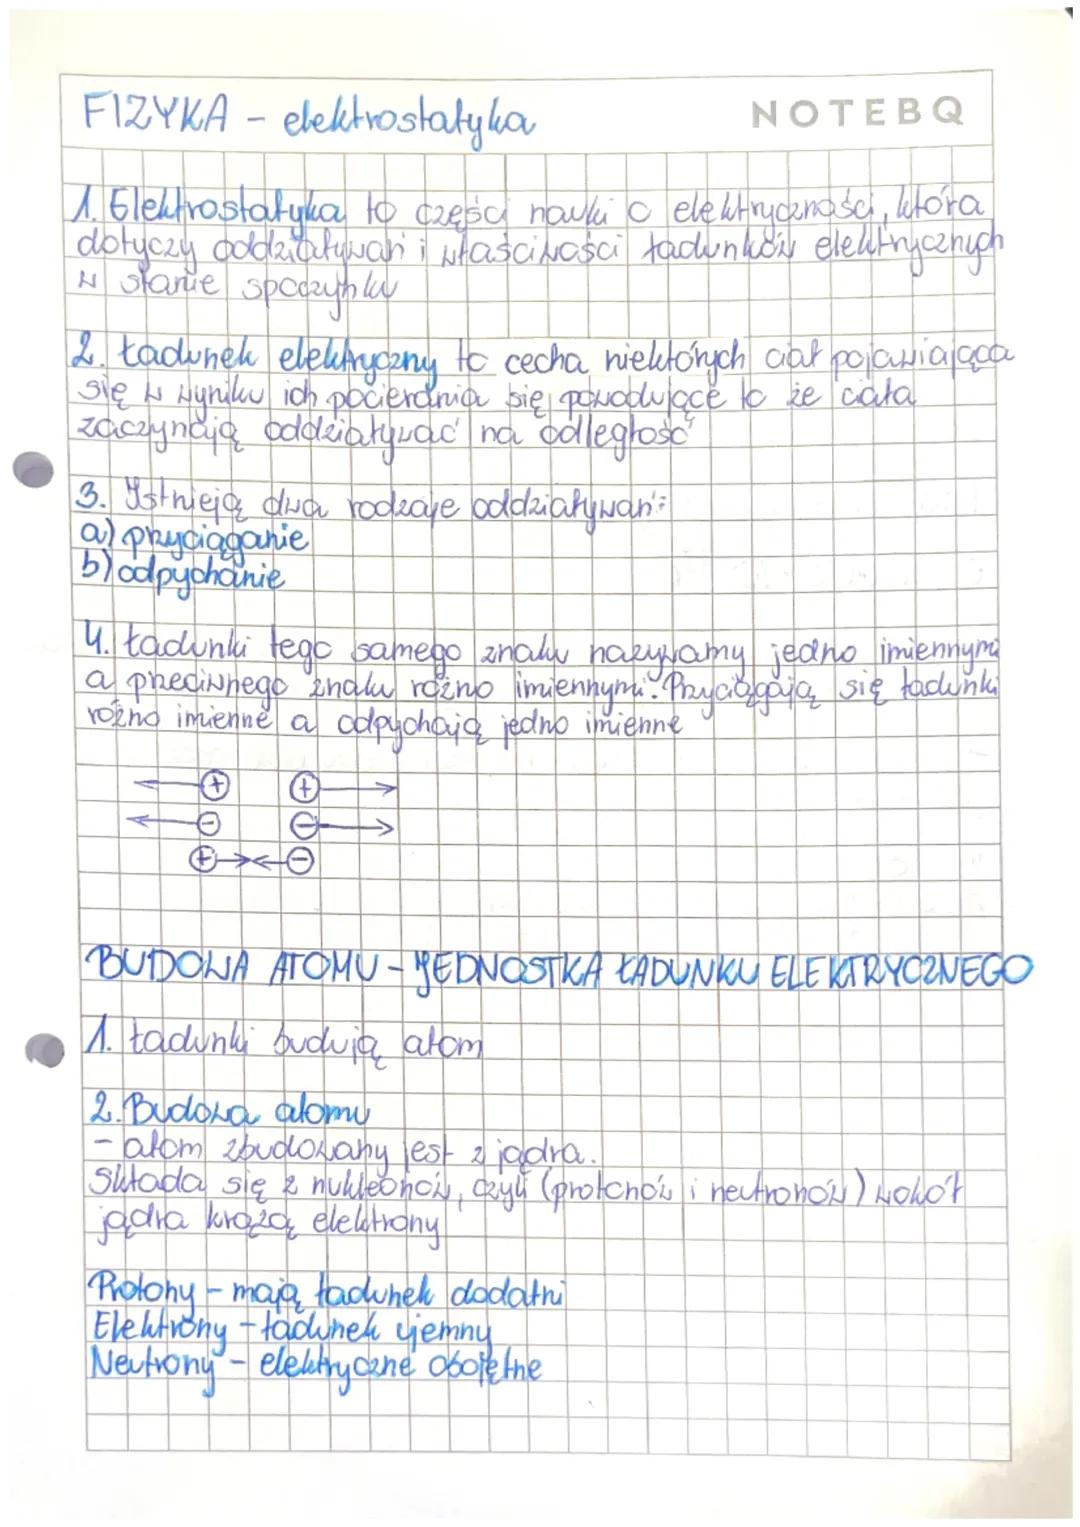 FIZYKA - elektrostatyka
NOTEBQ
1. Elektrostatyka to część nauki o elektryczności, która
dotyczy oddziaływań i właściwości ładunków elektrycznych
w stanie spoczynku
2. Ładunek elektryczny to cecha niektórych ciał pojawiająca
się w wyniku ich pocierania się, powodujące to że ciała
zaczynają oddziaływać na odległość
3. Istnieją dwa rodzaje oddziaływań:
a) przyciąganie
b) odpychanie
4. Ładunki tego samego znaku nazywamy jedno imiennymi
a przeciwnego znaku rożno imiennymi. Przyciągają się ładunki
rożno imienne a odpychają jedno imienne
+ +
- -
+ -
BUDOWA ATOMU - JEDNOSTKA ŁADUNKU ELEKTRYCZNEGO
1. Ładunki budują atom
2. Budowa atomu
- atom zbudowany jest z jądra.
Składa się z nukleonów, czyli (protonów i neutronów) wokół
jądra krążą elektrony
Protony - mają ładunek dodatni
Elektrony - ładunek ujemny
Neutrony - elektryczne obojętne